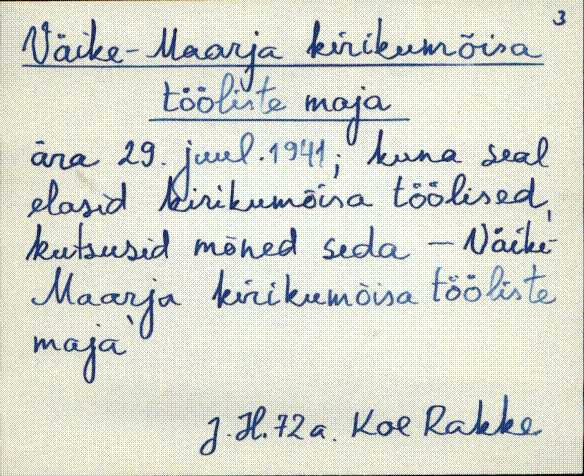 3
Väike-Maarja kirikumõisa
tööliste maja
ära 29. juul. 1941; kuna seal
elasid kirikumõisa töölised,
kutsusid mõned seda – Väike-
Maarja kirikumõisa tööliste
maja'
J. H. 72 a. Koe Rakke